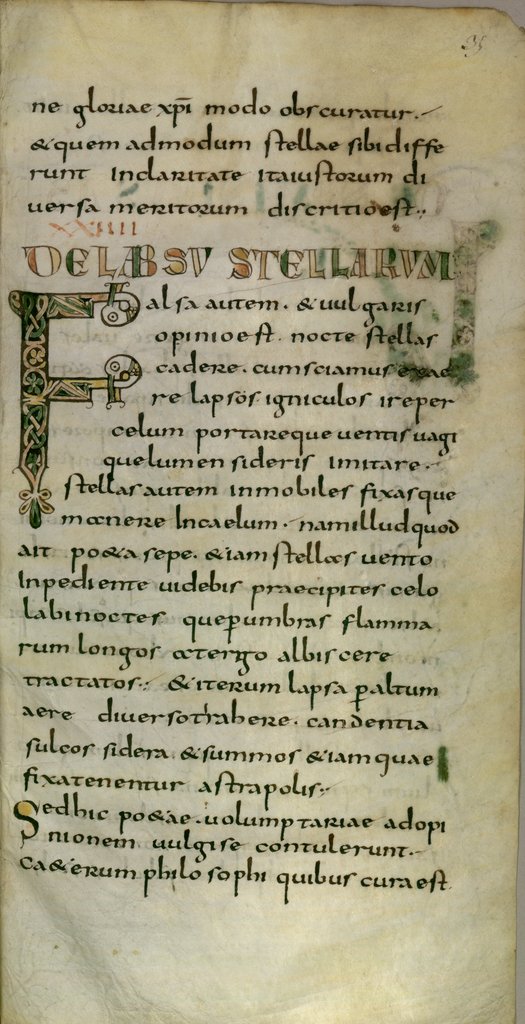 35
ne gloriae xpi modo obscuratur.
& quem admodum stellae sibi diffe
runt Inclaritate Ita iustorum di
versa meritorum discritio est.
XXIIII
DE LABSU STELLARUM
Falsa autem. & uulgaris
opinio est. nocte stellas
cadere. cum sciamus
re lapsos igniculos ire per
celum portareque uentis uagi
que lumen sideris Imitare.
stellas autem inmobiles fixas que
manere In caelum. nam illud quod
ait po&a sepe. &iam stellas uento
Inpediente uidebis praecipites celo
labi noctes que p umbras flamma
rum longos a tergo albiscere
tractatos. & iterum lapsa p altum
aere diverso trahere. candentia
sulcos sidera & summos &iam quae
fixa tenentur astra polis.
Sed hic po&ae. uolumptariae ad opi
nionem uulgi se contulerunt.
ca&erum philosophi quibus cura est